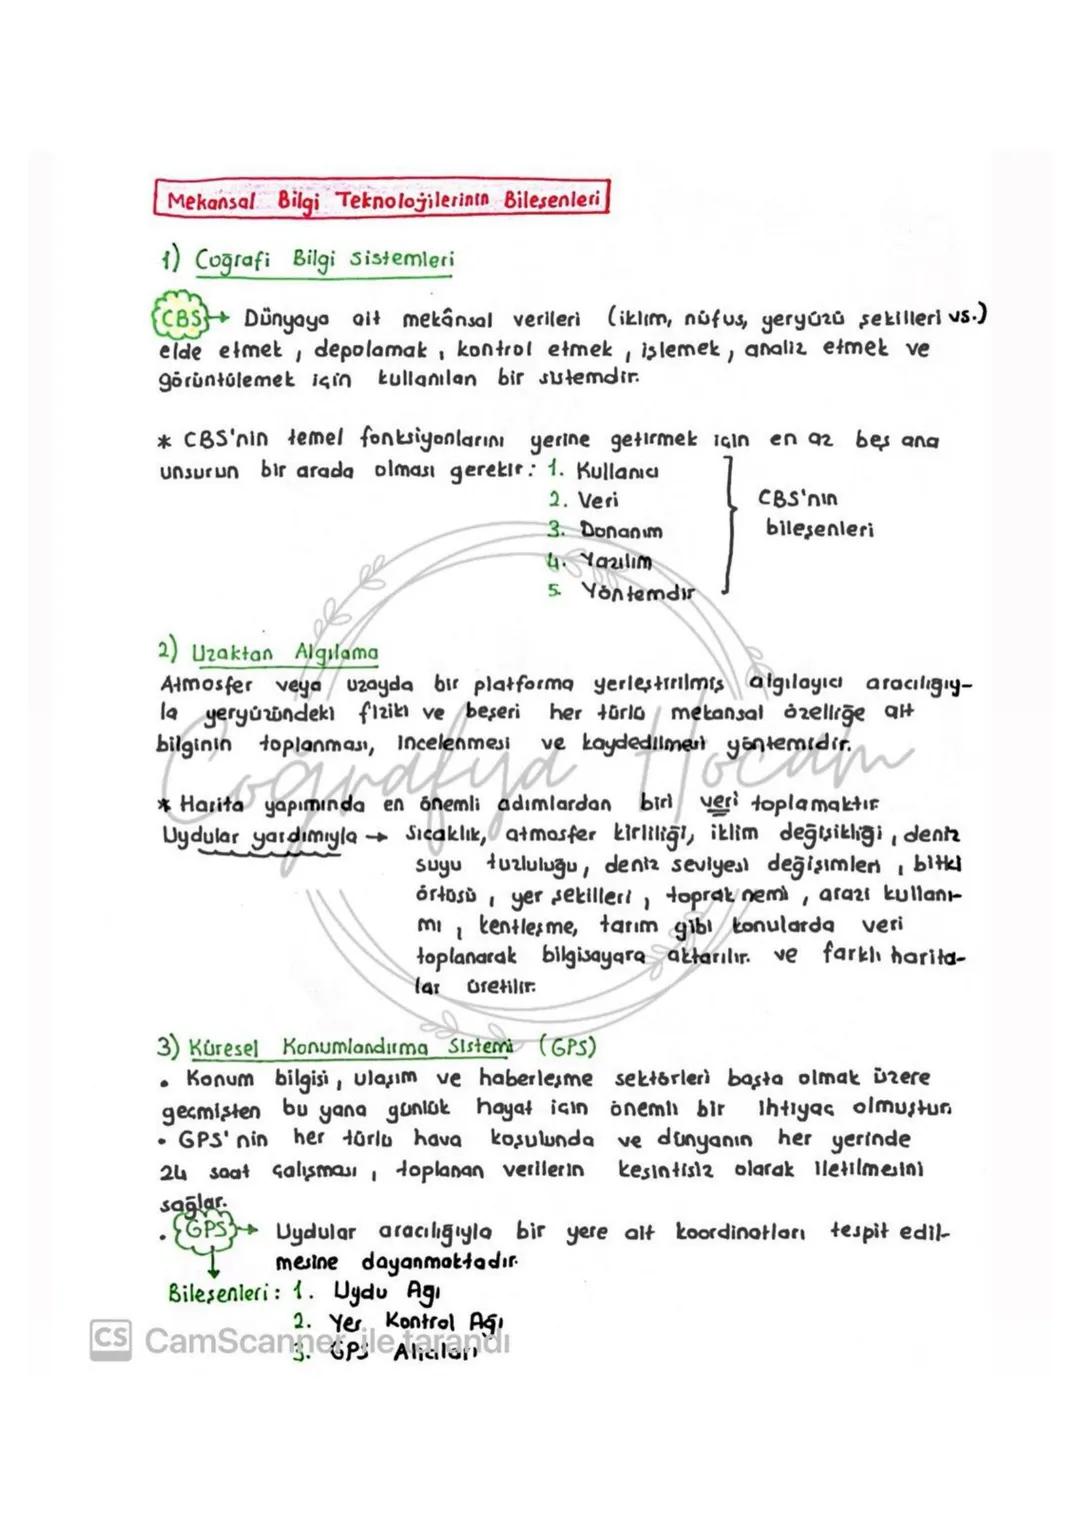 Mekansal Bilgi Teknolojilerinin Bileşenleri
1) Coğrafi Bilgi Sistemleri
CBS → Dünyaya ait mekânsal verileri (iklim, nüfus, yeryüzü şekilleri vs.)
elde etmek, depolamak, kontrol etmek, işlemek, analiz etmek ve
görüntülemek için kullanılan bir sistemdir.
* CBS'nin temel fonksiyonlarını yerine getirmek için en az beş ana
unsurun bir arada olması gerekir: 1. Kullanıcı
2. Veri
CBS'nin
3. Donanım
bileşenleri
4. Yazılım
5. Yöntemdir
2) Uzaktan Algılama
Atmosfer veya uzayda bir platforma yerleştirilmiş algılayıcı aracılığıy-
la yeryüzündeki fiziki ve beşeri her türlü mekansal özelliğe ait
bilginin toplanması, incelenmesi ve kaydedilmesi yöntemidir.
* Harita yapımında en önemli adımlardan biri veri toplamaktır
Uydular yardımıyla → Sıcaklık, atmosfer kirliliği, iklim değişikliği, deniz
suyu tuzluluğu, deniz seviyesi değişimleri, bitki
örtüsü, yer şekilleri, toprak nemi, arazi kullanı-
mı, kentleşme, tarım gibi konularda veri
toplanarak bilgisayara aktarılır. ve farklı harita-
lar üretilir.
Coğrafya Hocam
3) Küresel Konumlandırma Sistemi (GPS)
• Konum bilgisi, ulaşım ve haberleşme sektörleri başta olmak üzere
geçmişten bu yana günlük hayat için önemli bir ihtiyaç olmuştur.
• GPS'nin her türlü hava koşulunda ve dünyanın her yerinde
24 saat çalışması, toplanan verilerin kesintisiz olarak iletilmesini
sağlar.
• GPS → Uydular aracılığıyla bir yere ait koordinatları tespit edil-
mesine dayanmaktadır.
Bileşenleri: 1. Uydu Ağı
2. Yer Kontrol Ağı
3. GPS Alıcıları
CS CamScanner ile tarandı